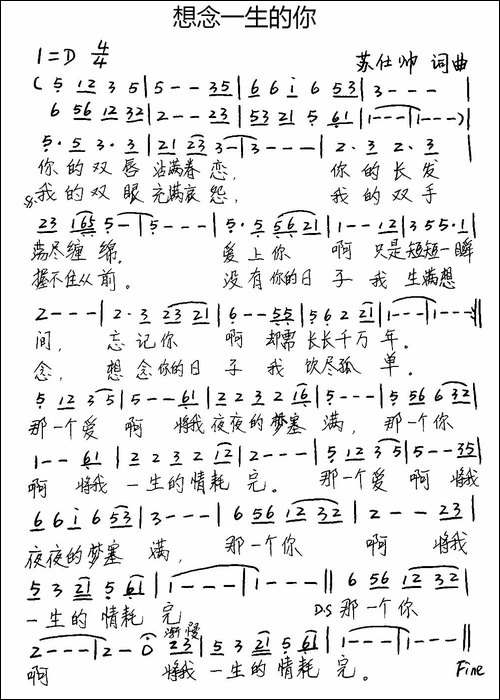 想念一生的你
1=D 4/4
苏仕帅 词曲
( 5 12 3 5 | 5 - - 35 | 6 6 i 6 53 | 3 - - - |
6 56 12 32 | 2 - - 23 | 53 21 5 61 | 1 - - - | 1 - - - ) |
5 · 5 3 · 3 | 21 23 3 - | 3 - - - | 2 · 3 2 · 3 |
你的双唇沾满春恋, 你的长发
我的双眼充满哀怨, 我的双手
23 165 5 - | 5 - - - | 5 · 5 56 21 | 1 - - 12 | 3 55 · 1 |
荡尽缠绵。 爱上你 啊 只是短短一瞬
握不住从前。 没有你的日子我 生满想
2 - - - | 2 · 3 23 21 | 6 - - 55 | 5 6 2 21 | 1 - - - | 1 - - - ‖
间, 忘记你 啊 却需长长千万年。
念, 想念你的日子我 饮尽孤单。
5 12 3 5 | 5 - - 61 | 2 2 3 2 16 | 5 - - - | 5 56 6 32 |
那一个爱 啊 将我夜夜的梦塞满, 那一个你
1 - - 61 | 2 2 3 2 12 | 2 - - - | 5 12 3 5 | 5 - - 35 |
啊 将我一生的情耗完。 那一个爱 啊 将我
6 6 i 6 53 | 3 - - - | 6 56 12 32 | 2 - - 23 |
夜夜的梦塞满, 那一个你 啊 将我
5 3 21 5 61 | 1 - - - | 1 - - - ‖ 6 56 12 32 |
一生的情耗完 D.S 那一个你
渐慢
2 - - - | 2 - 0 23 | 5 3 21 5 61 | 1 - - - | 1 - - - ‖
啊 将我一生的情耗完。 Fine